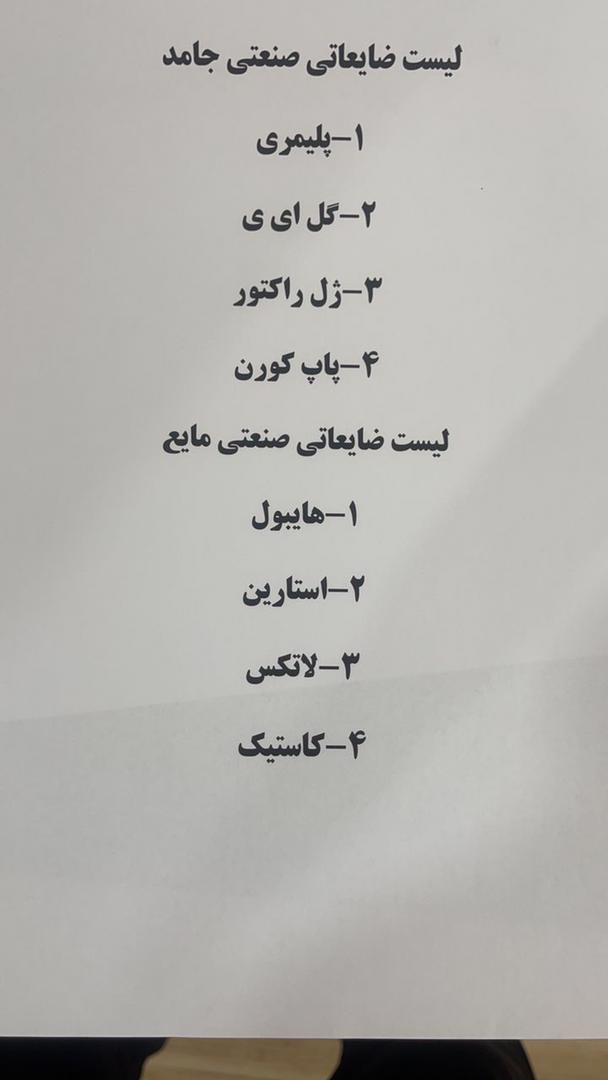 لیست ضایعاتی صنعتی جامد
۱-پلیمری
۲-گل ای ی
۳-ژل راکتور
۴-پاپ کورن
لیست ضایعاتی صنعتی مایع
۱-هایبول
۲-استارین
۳-لاتکس
۴-کاستیک